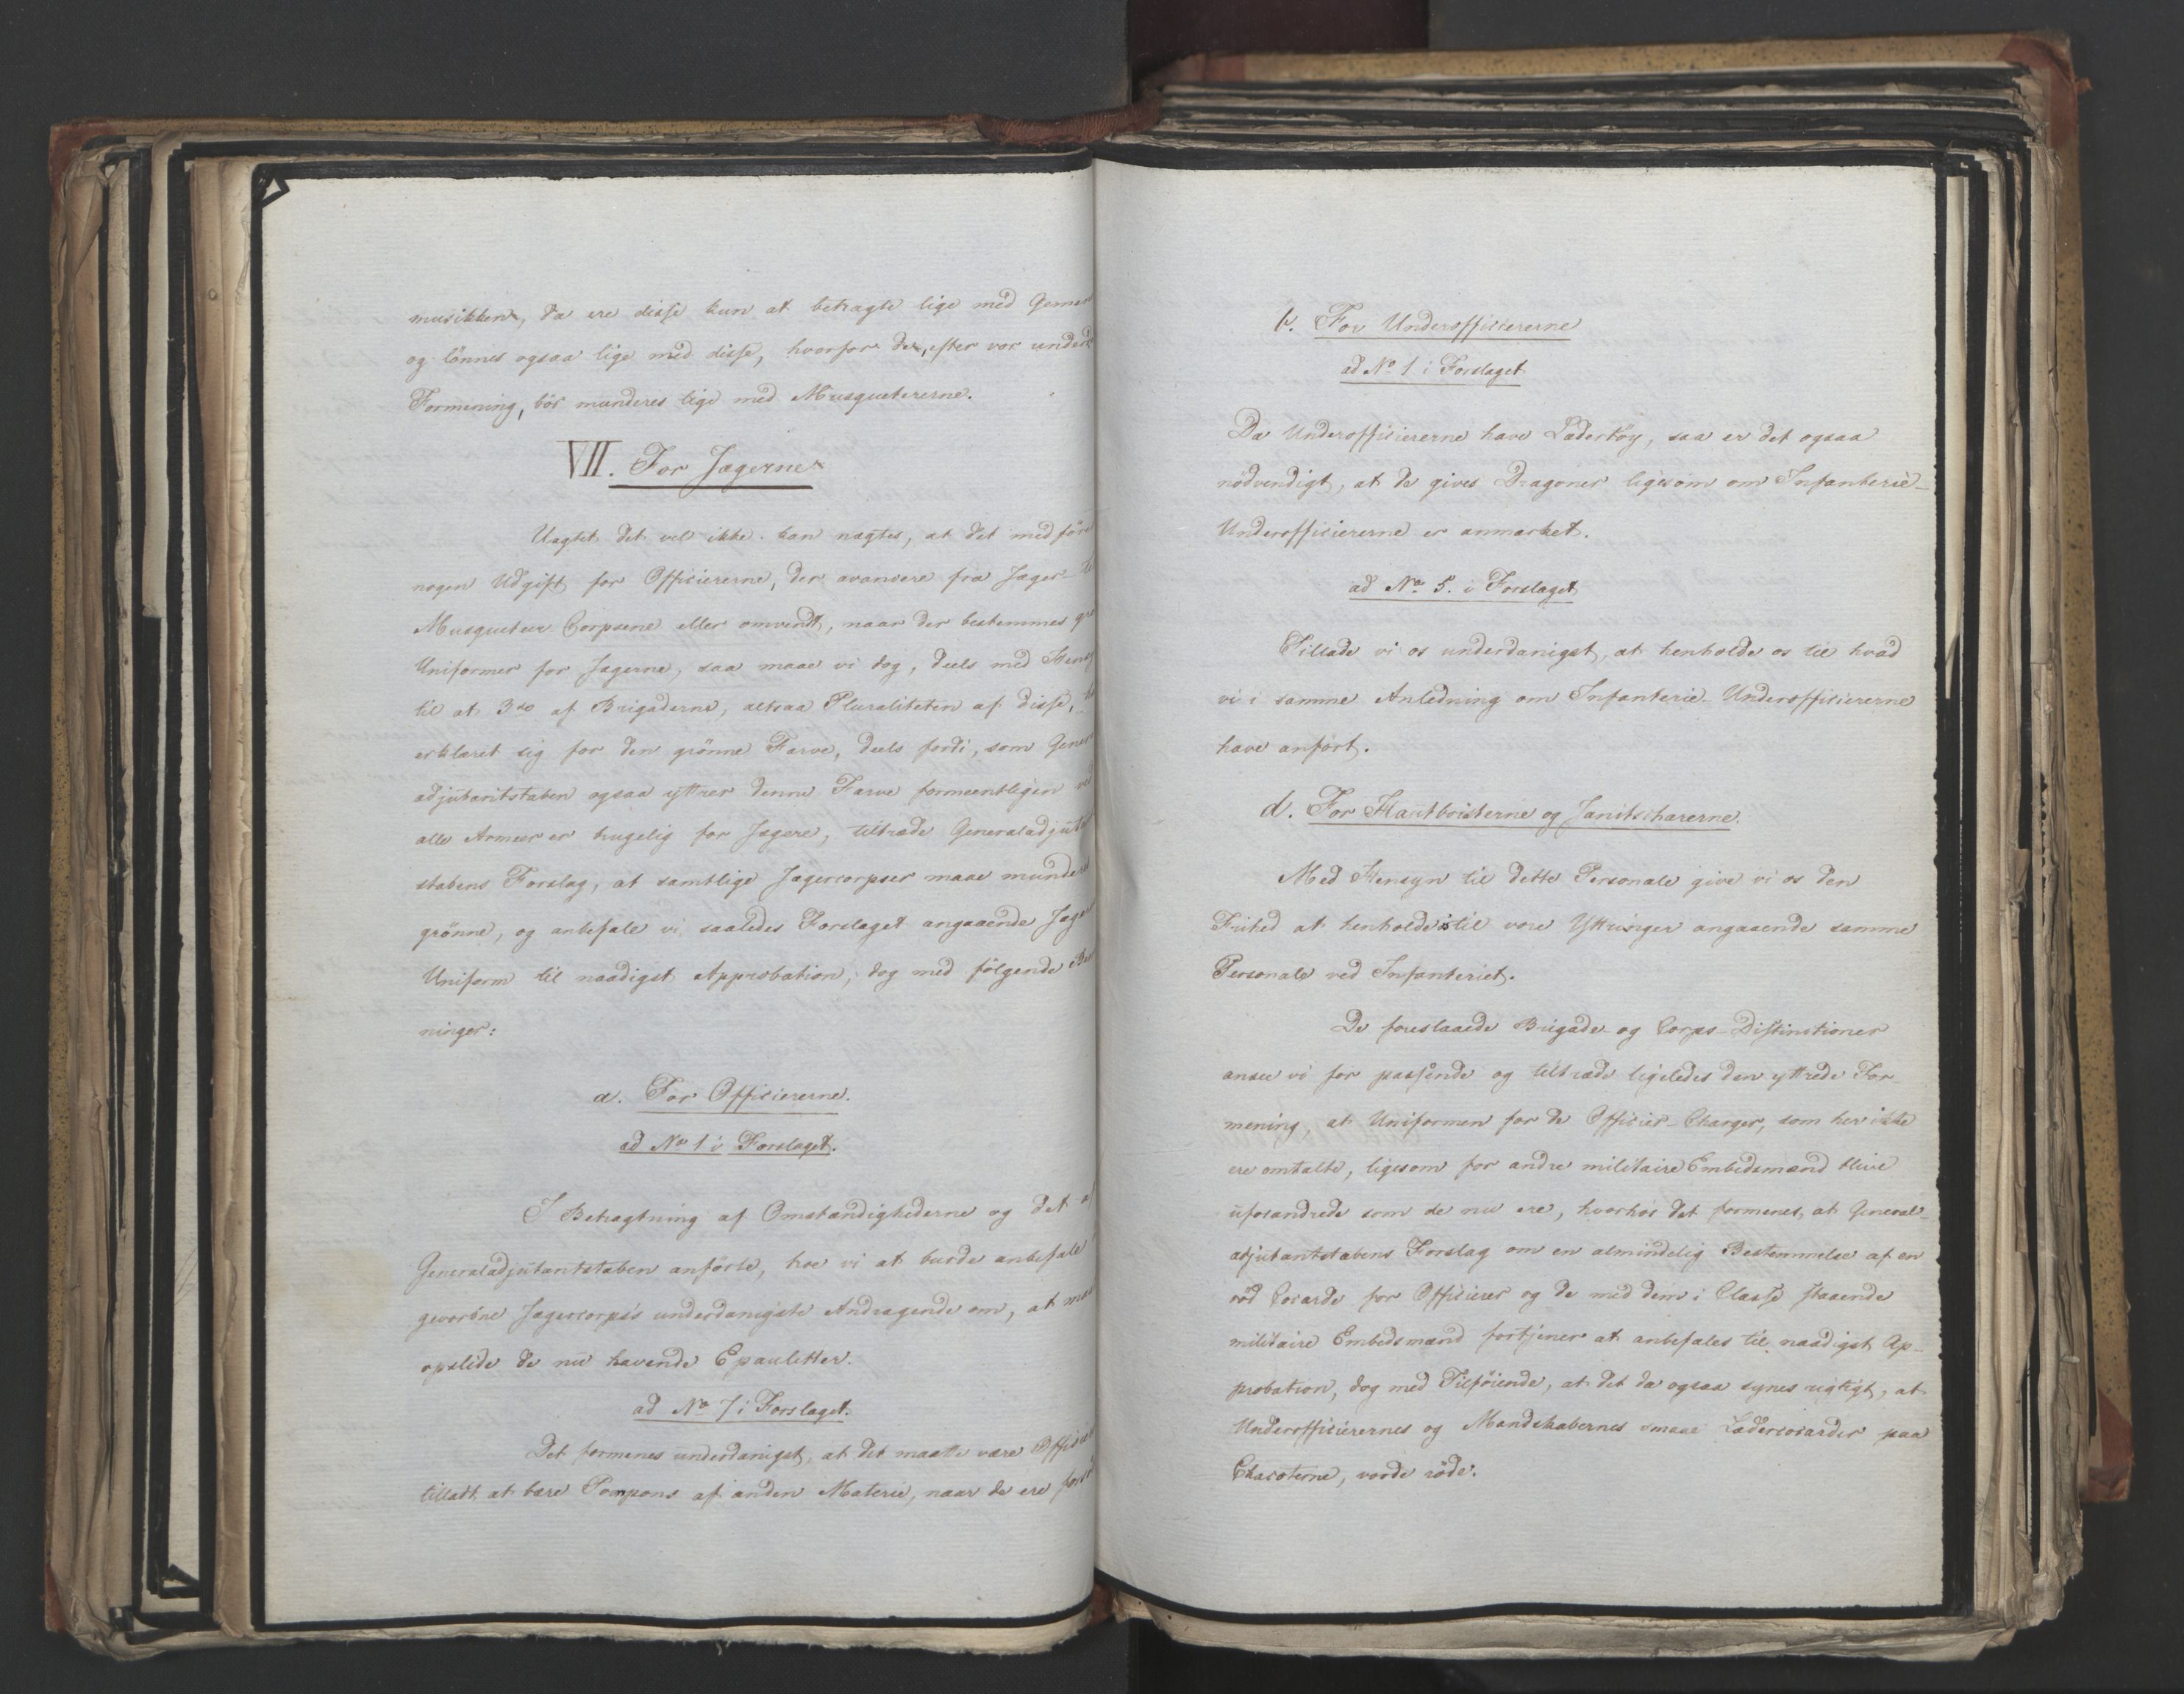 musikken, da ere disse kun at betragte lige med Gemen
og lönnes ogsaa lige med disse, hvorfor de, efter vor underd
Formening, bör munderes lige med Musquetererne.
VII. For Jægerne
Uagtet det vel ikke kan nægtes, at det medföre
nogen Udgift for Officiererne, der avancere fra Jæger- til
Musqueteer Corpsene eller omvendt, naar der bestemmes grö
Uniformer for Jægerne, saa maae vi dog, deels med Hens
til at 3de af Brigaderne, altsaa Pluraliteten af disse,
erklæret sig for den grönne Farve, deels fordi, som General
adjutantstaben ogsaa yttrer denne Farve formeentligen ved
alle Armeer er brugelig for Jægere, tiltræde Generaladjutant
stabens Forslag, at samtlige Jægercorpser maae munderes
grönne, og anbefale vi saaledes Forslaget angaaende Jæger
Uniform til naadigst Approbation, dog med fölgende Bem
ninger:
a. For Officiererne.
ad No 1 i Forslaget.
I Betragtning af Omstændighederne og det af
Generaladjutantstaben anförte, troe vi at burde anbefale
gevorbne Jægercorps's underdanigste Andragende om, at maa
opslide de nu havende Epauletter.
ad No 7 i Forslaget.
Det formenes underdanigst, at det maatte være Officie
tilladt at bære Pompons af anden Materie, naar de ere
c. For Underofficiererne
ad No 1 i Forslaget
Da Underofficiererne have Lædertöy, saa er det ogsaa
nödvendigt, at de gives Dragoner ligesom om Infanterie-
Underofficiererne er anmærket.
ad No 5. i Forslaget
Tillade vi os underdanigst, at henholde os til hvad
vi i samme Anledning om Infanterie-Underofficiererne
have anfört.
d. For Hautboisterne og Janitscharerne.
Med Hensyn til dette Personale give vi os den
Frihed at henholde os til vore Yttringer angaaende samme
Personale ved Infanteriet.
De foreslaaede Brigade- og Corps-Distinctioner
ansee vi for passende og tiltræde ligeledes den yttrede For-
mening, at Uniformen for de Officier-Charger, som her ikke
ere omtalte, ligesom for andre militaire Embedsmænd blive
uforandrede som de nu ere, hvorhos det formenes, at General-
adjutantstabens Forslag om en almindelig Bestemmelse af en
röd Cocarde for Officierer og de med dem i Classe staaende
militaire Embedsmænd fortjener at anbefales til naadigst Ap-
probation, dog med Tilföiende, at det da ogsaa synes rigtigt, at
Underofficierernes og Mandskabernes smaae Lædercocarder paa
Chacoterne, vorde röde.